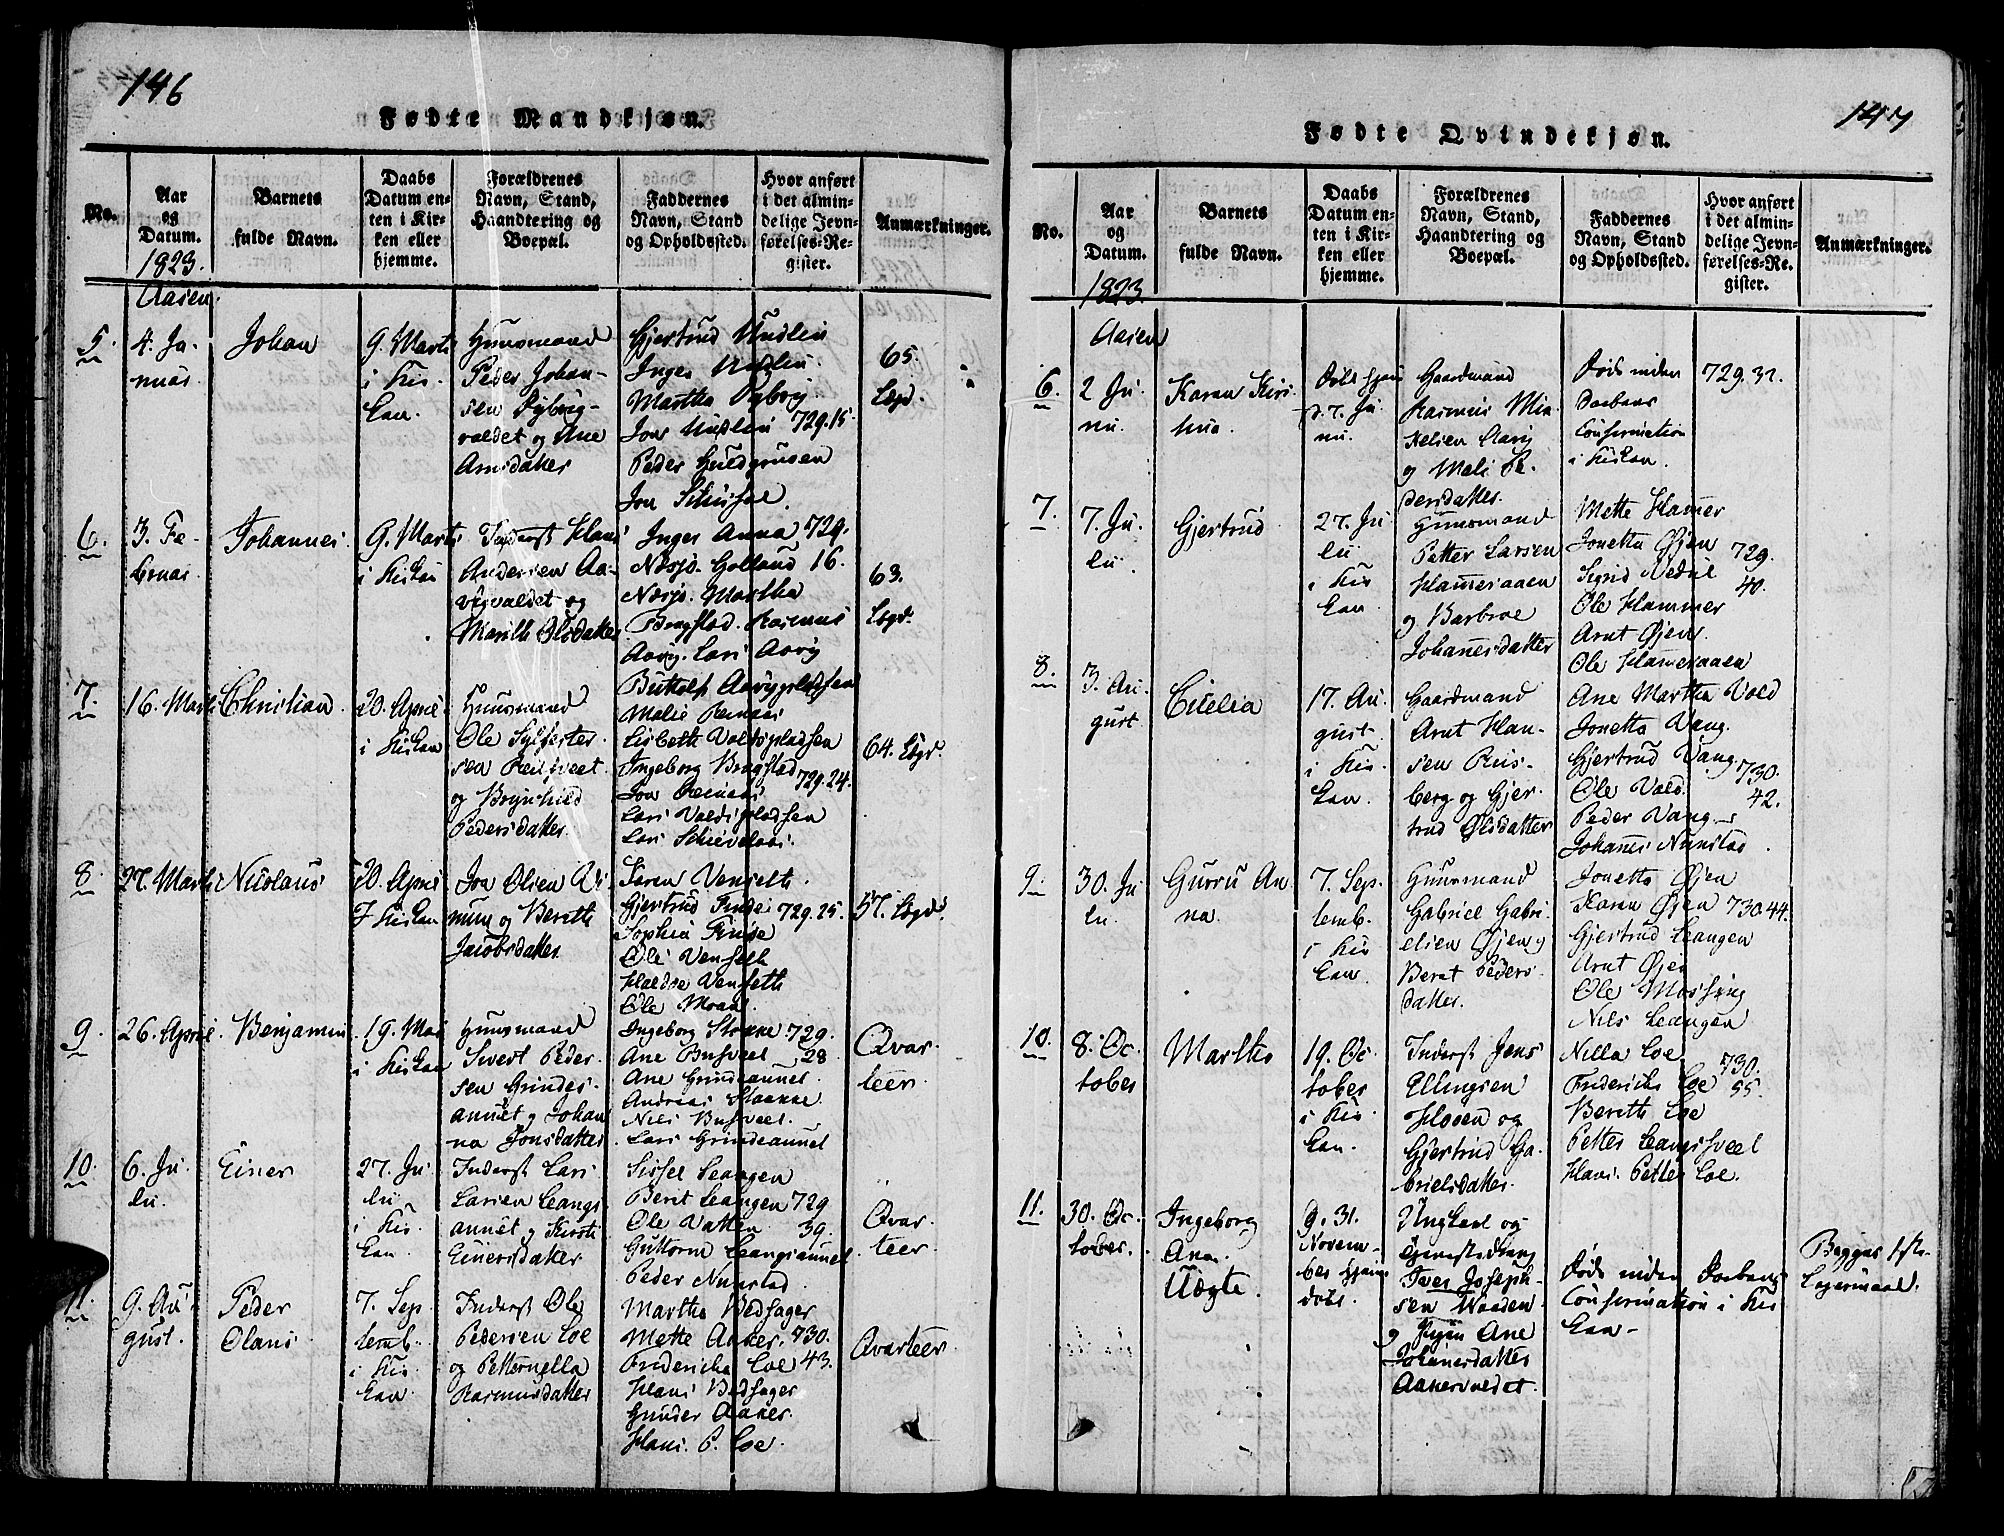 146
Fødte Mandkjøn.
No.
Aar
og
Datum.
1823.
Barnets
fulde Navn.
Daabs
Datum en-
ten i Kir-
ken eller
hjemme.
Forældrenes
Navn, Stand,
Haandtering og
Boepæl.
Faddernes
Navn, Stand
og Opholdssted.
Hvor anført
i det almin-
delige Jevn-
førelses-Re-
gister.
Anmærkninger.
Aasen.
5.
4. Ja-
nuar.
Johan
9. Marts
i Kir
ken.
Huusmand
Peder Johan-
sen Ryborg-
valdet og Ane
Arnsdatter
Gjertrud
Inger
Martha Ryborg
Jon
Peder
Jon
729.15
65.
Lægd.
6.
3. Fe-
bruar.
Johannes.
9. Marts
i Kirken
Inderst Hans
Andersen Aa-
vigvaldet og
Marith Olsdatter
Inger Anna
Næsjø. Golland
Næsjø. Martha
Bragstad. Rasmus
Aavig. Lars Aavig
729.
16.
63.
Lægd.
7.
16. Marts
Christian.
20. April
i Kirken
Huusmand
Ole Sylfester-
sen
og Brynhild
Pedersdatter.
Buttolf Aavigpladsen
Malie
Lisbeth Valdspladsen
Ingeborg Bragstad
Jon
Lars Valdspladsen
Lars
729.24.
64. Lægd.
8.
27. Marts
Nicolaus
20. April
I Kirken
Jon Olsen Vi
num og Bereth
Jacobsdatter
Søren Venseth.
Gjertrud
Sophia
Ole Venseth
Haldor Venseth
Ole Moan.
729.25.
57. Lægd.
9.
26. April
Benjamin
19. Mai
i Kirken
Huusmand
Sivert Peder-
sen Grindes-
annet og Johan
na Jonsdatter
Ingeborg Stokke
Ane Busveet
Ane Grindeaunet
Andreas Stokke
Nils Busveet.
Lars Grindeaunet
729.
28
Qvar
teer.
10.
6. Ju
lii.
Einer
27. Ju
lii
i Kir.
ken.
Inderst Lars
Larsen Leangs
aunet og Kirsti
Einersdatter
Sissel Leangen
Berit Leangen
Ole Vatten
Guttorm Leangsaunet
Peder Nunstad
729
39.
Qvar.
teer.
11.
9. Au-
gust.
Peder
Olaus
7. Sep
temb.
i Kir
ken
Inderst Ole
Pedersen Loe
og Petternella
Rasmusdatter
Martha Vedsager
Mette Aaker
Fredericha Loe
Hans Vedsager
Gunder Aaker.
Hans. P. Loe.
730.
43.
Qvarteer.
147
Fødte Qvindekjøn.
No.
Aar
og
Datum.
1823.
Barnets
fulde Navn.
Daabs
Datum en-
ten i Kir-
ken eller
hjemme.
Forældrenes
Navn, Stand,
Haandtering og
Boepæl.
Faddernes
Navn, Stand
og Opholdssted.
Hvor anført
i det almin-
delige Jevn-
førelses-Re-
gister.
Anmærkninger.
Aasen
6.
2 Ju
nii.
Karen Kirs
tina.
Døbt hjem
d. 7. Ju
nii.
Gaardmand
Rasmus Mic
kelsen Aavig
og Mali Pe.
dersdatter.
Døde inden
Daabens
Confirmation
i Kirken.
729.32.
7.
7. Ju.
lii.
Gjertrud
27. Ju
lii
i Kir
ken.
Huusmand
Petter Larsen
Hammeraaen
og Barbroe
Johanesdatter
Mette Hamer
Jonetta Øjen
Sigrid Nedal
Ole Hammer
Arnt Øjen.
Ole Hameraaen
729.
40.
8.
3. Au.
gust
Cicelia
17. Au
gust
i Kir.
ken.
Gaardmand
Arnt Han-
sen Reis-
berg og Gjer
trud Olsdatter
Ane Martha Vold
Jonetta Vang.
Gjertrud Vang.
Ole Vold.
Peder Vang
Johanes Nunstad.
730.
42.
9.
30. Ju
lii.
Gurru An
na.
7. Sep.
temb.
i Kir
ken.
Huusmand
Gabriel Gabri.
elsen Øjen og
Berit Peders-
datter.
Jonetta Øjen
Karen Øjen
Gjertrud Leangen
Arnt Øjen
Ole Mossing
Nils Leangen
730.44.
10.
8. Oc.
tober
Martha
19. Oc
tober
i Kir
ken.
Inderst Jens
Ellingsen
Hojem og
Gjertrud Ga-
brielsdatter.
Nilla Loe
Fredericha Loe
Bereth Loe
Petter Leangsveet
Hans. Petter Loe.
730.
55.
11.
30. Oc.
tober.
Ingeborg
Ana.
Uægte.
9. 31.
Novem-
ber hjem
døbt.
Ungkarl og

Iver Joseph-
sen Naaden
og Pigen Ane
Johanesdatter
Aakervaldet.
Døde inden
Confirmation
Daabens
i Kir
ken-
Begges 1ste
Lejermaal.